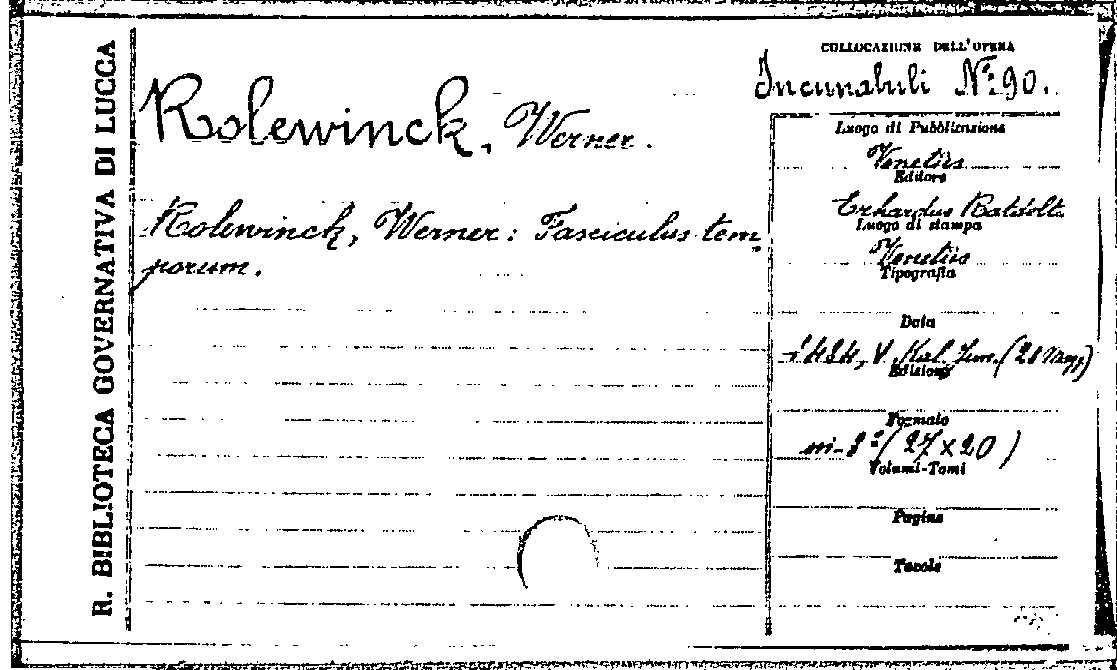 R. BIBLIOTECA GOVERNATIVA DI LUCCA
Rolewinck, Werner.
Rolewinck, Werner: Fasciculus tem
porum.
COLLOCAZIONE DELL'OPERA
Incunabuli N.º 90.
Luogo di Pubblicazione
Venetiis
Editore
Erhardus Ratdolt.
Luogo di stampa
Venetiis
Tipografia
Data
1484, V. Kal. Jun. (28 Magg)
Edizione
Formato
in-2º (27 x 20)
Volumi-Tomi
Pagine
Tavole